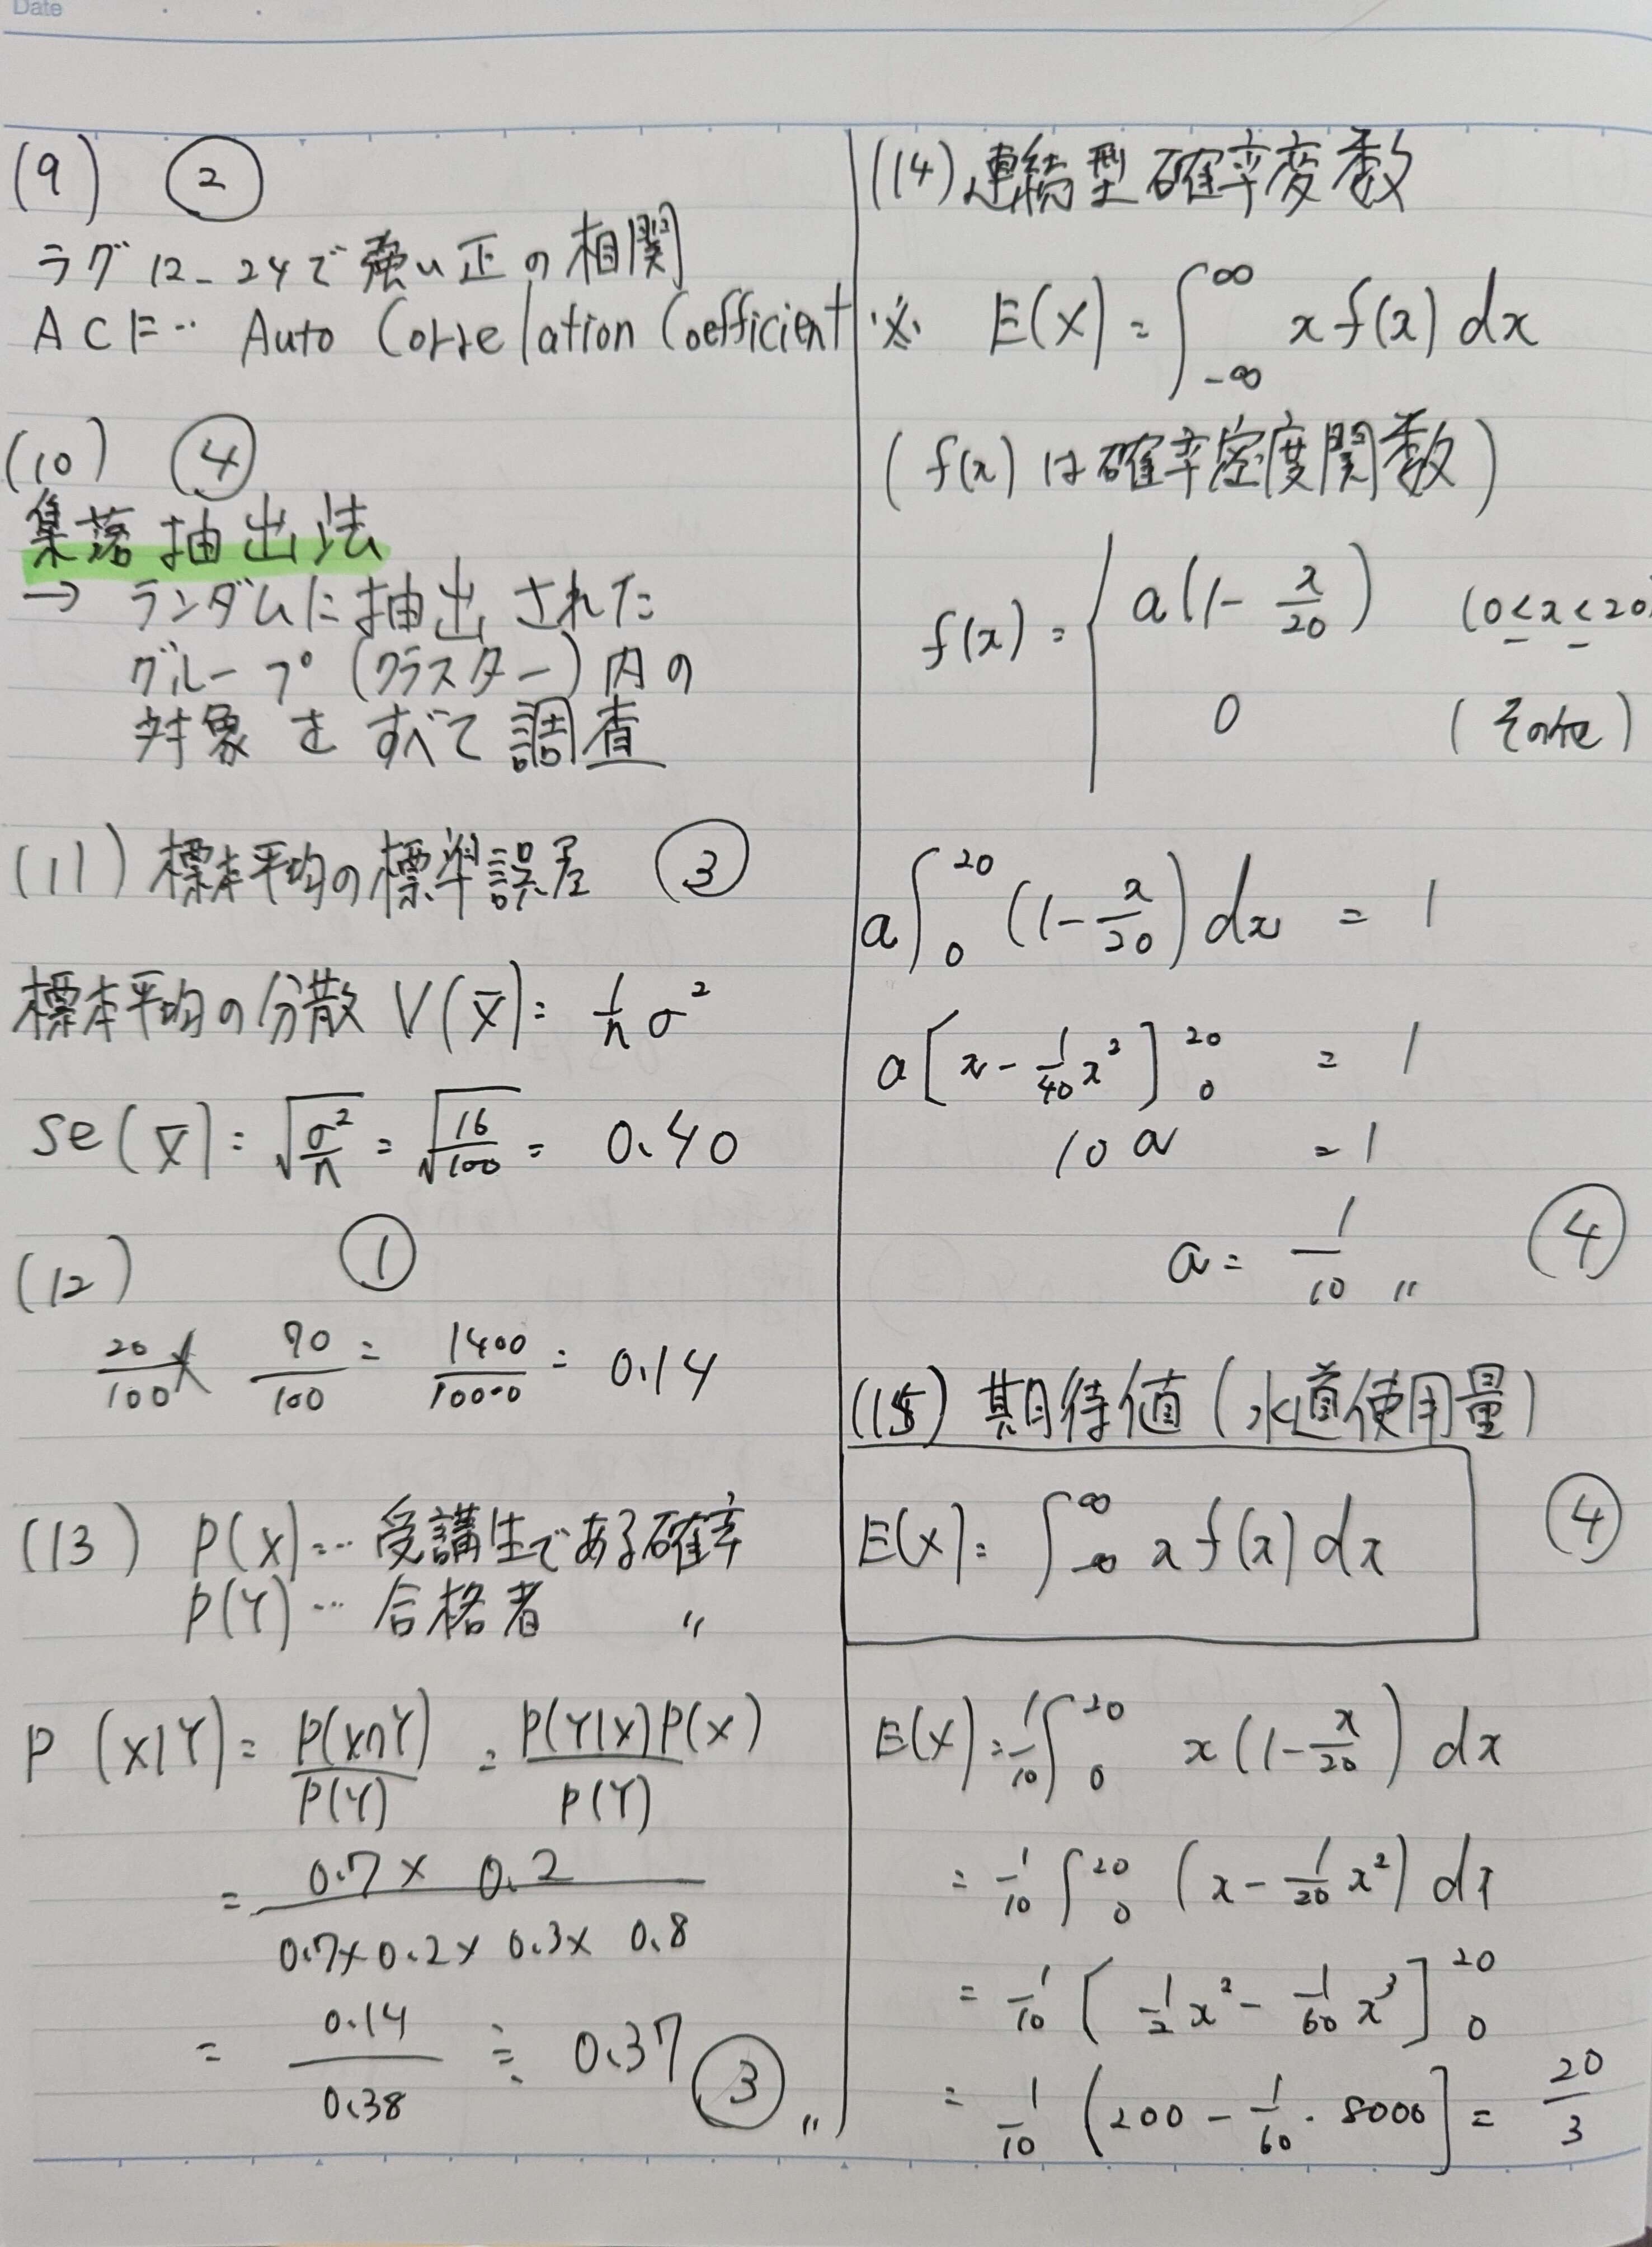 Date
(9) ②
ラグ12_24で強い正の相関
ACF… Auto Correlation Coefficient
(10) ④
集落抽出法
→ ランダムに抽出された
グループ(クラスター)内の
対象をすべて調査
(11) 標本平均の標準誤差 ③
標本平均の分散 V(x̄) = 1/n σ²
se(x̄) = √(σ²/n) = √(16/100) = 0.40
(12) ①
20/100 × 70/100 = 1400/10000 = 0.14
(13) P(X)… 受講生である確率
P(Y)… 合格者 〃
P(X|Y) = P(X∩Y)/P(Y) = P(Y|X)P(X)/P(Y)
= 0.7×0.2/0.7×0.2×0.3×0.8
= 0.14/0.38 ≒ 0.37 ③〃
(14) 連続型確率変数
※ E(X) = ∫_{-∞}^{∞} x f(x) dx
(f(x)は確率密度関数)
f(x) = { a(1 - x/20) (0≦x≦20)
0 (その他)
a∫_0^20 (1 - x/20) dx = 1
a[x - 1/40 x²]_0^20 = 1
10a = 1
a = 1/10 〃 ④
(15) 期待値(水道使用量)
E(X) = ∫_{-∞}^{∞} x f(x) dx ④
E(X) = 1/10 ∫_0^20 x(1 - x/20) dx
= 1/10 ∫_0^20 (x - 1/20 x²) dx
= 1/10 [1/2 x² - 1/60 x³]_0^20
= 1/10 (200 - 1/60 · 8000] = 20/3